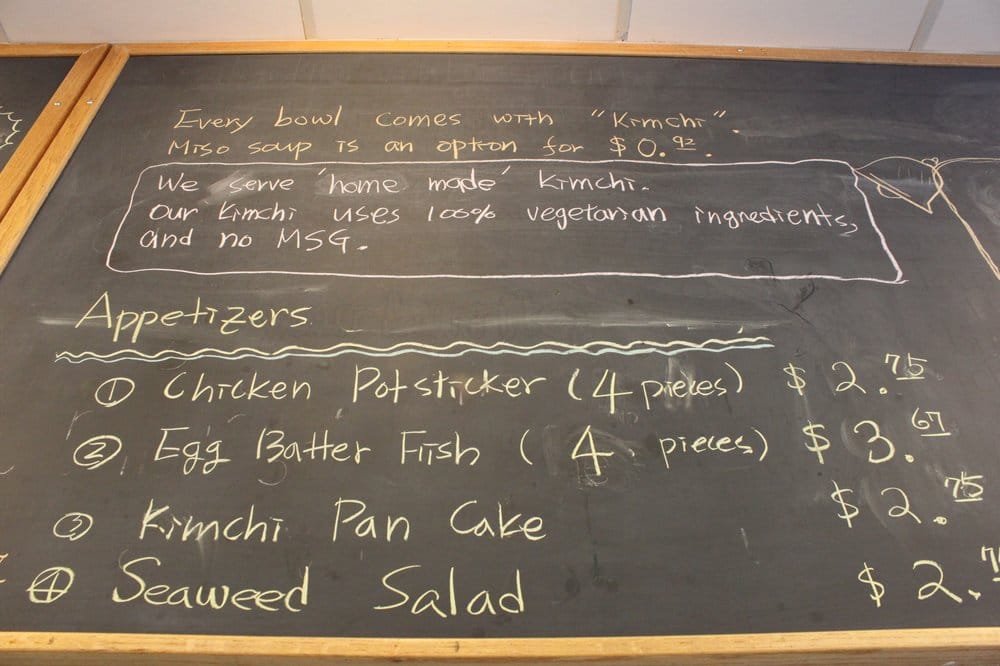 Every bowl comes with "Kimchi".
Miso soup is an option for $0.92.
We serve 'home made' Kimchi.
Our Kimchi uses 100% vegetarian ingredients,
and no MSG.
Appetizers
① Chicken Potsticker (4 pieces) $2.75
② Egg Batter Fish (4 pieces) $3.67
③ Kimchi Pan Cake $2.75
④ Seaweed Salad $2.